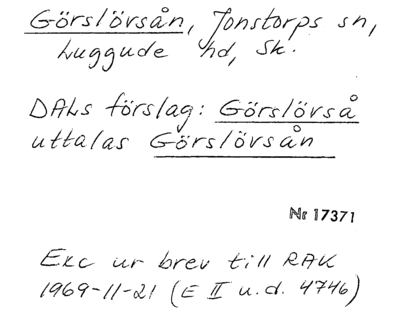 Görslövsån, Jonstorps sn,
Luggude hd, Sk.
DALs förslag: Görslövså
uttalas Görslövsån
Nr 17371
Exc ur brev till RAK
1969-11-21 (E II u.d. 4746)